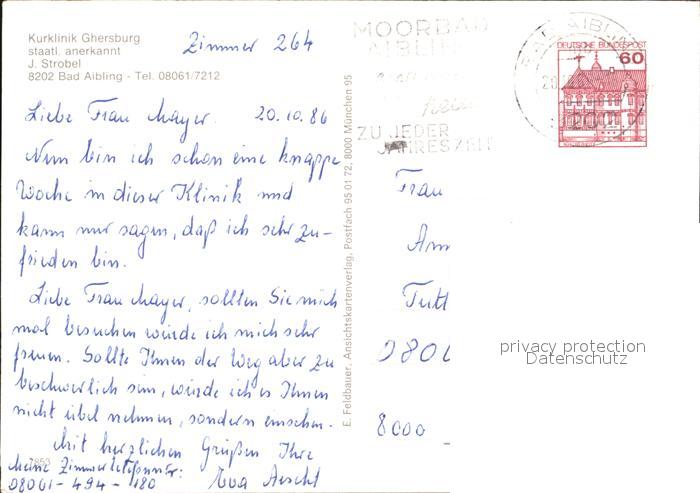 Kurklinik Ghersburg
staatl. anerkannt
J. Strobel
8202 Bad Aibling - Tel. 08061/7212
Zimmer 264
Liebe Frau Mayer. 20.10.86
Nun bin ich schon eine knappe
Woche in dieser Klinik und
kann nur sagen, daß ich sehr zu-
frieden bin.
Liebe Frau Mayer, sollten Sie mich
mal besuchen würde ich mich sehr
freuen. Sollte Ihnen der Weg aber zu
beschwerlich sein, würde ich es Ihnen
nicht übel nehmen, sondern einsehen.
Mit herzlichen Grüßen Ihre
7853
Meine Zimmertelefonnr:
08061-494-180 Eva
E. Feldbauer, Ansichtskartenverlag, Postfach 95 01 72, 8000 München 95
MOORBAD
AIBLING
ZU JEDER
JAHRESZEIT
BAD AIBLING
DEUTSCHE BUNDESPOST
60
Frau
Am
Tutt
8000
privacy protection
Datenschutz